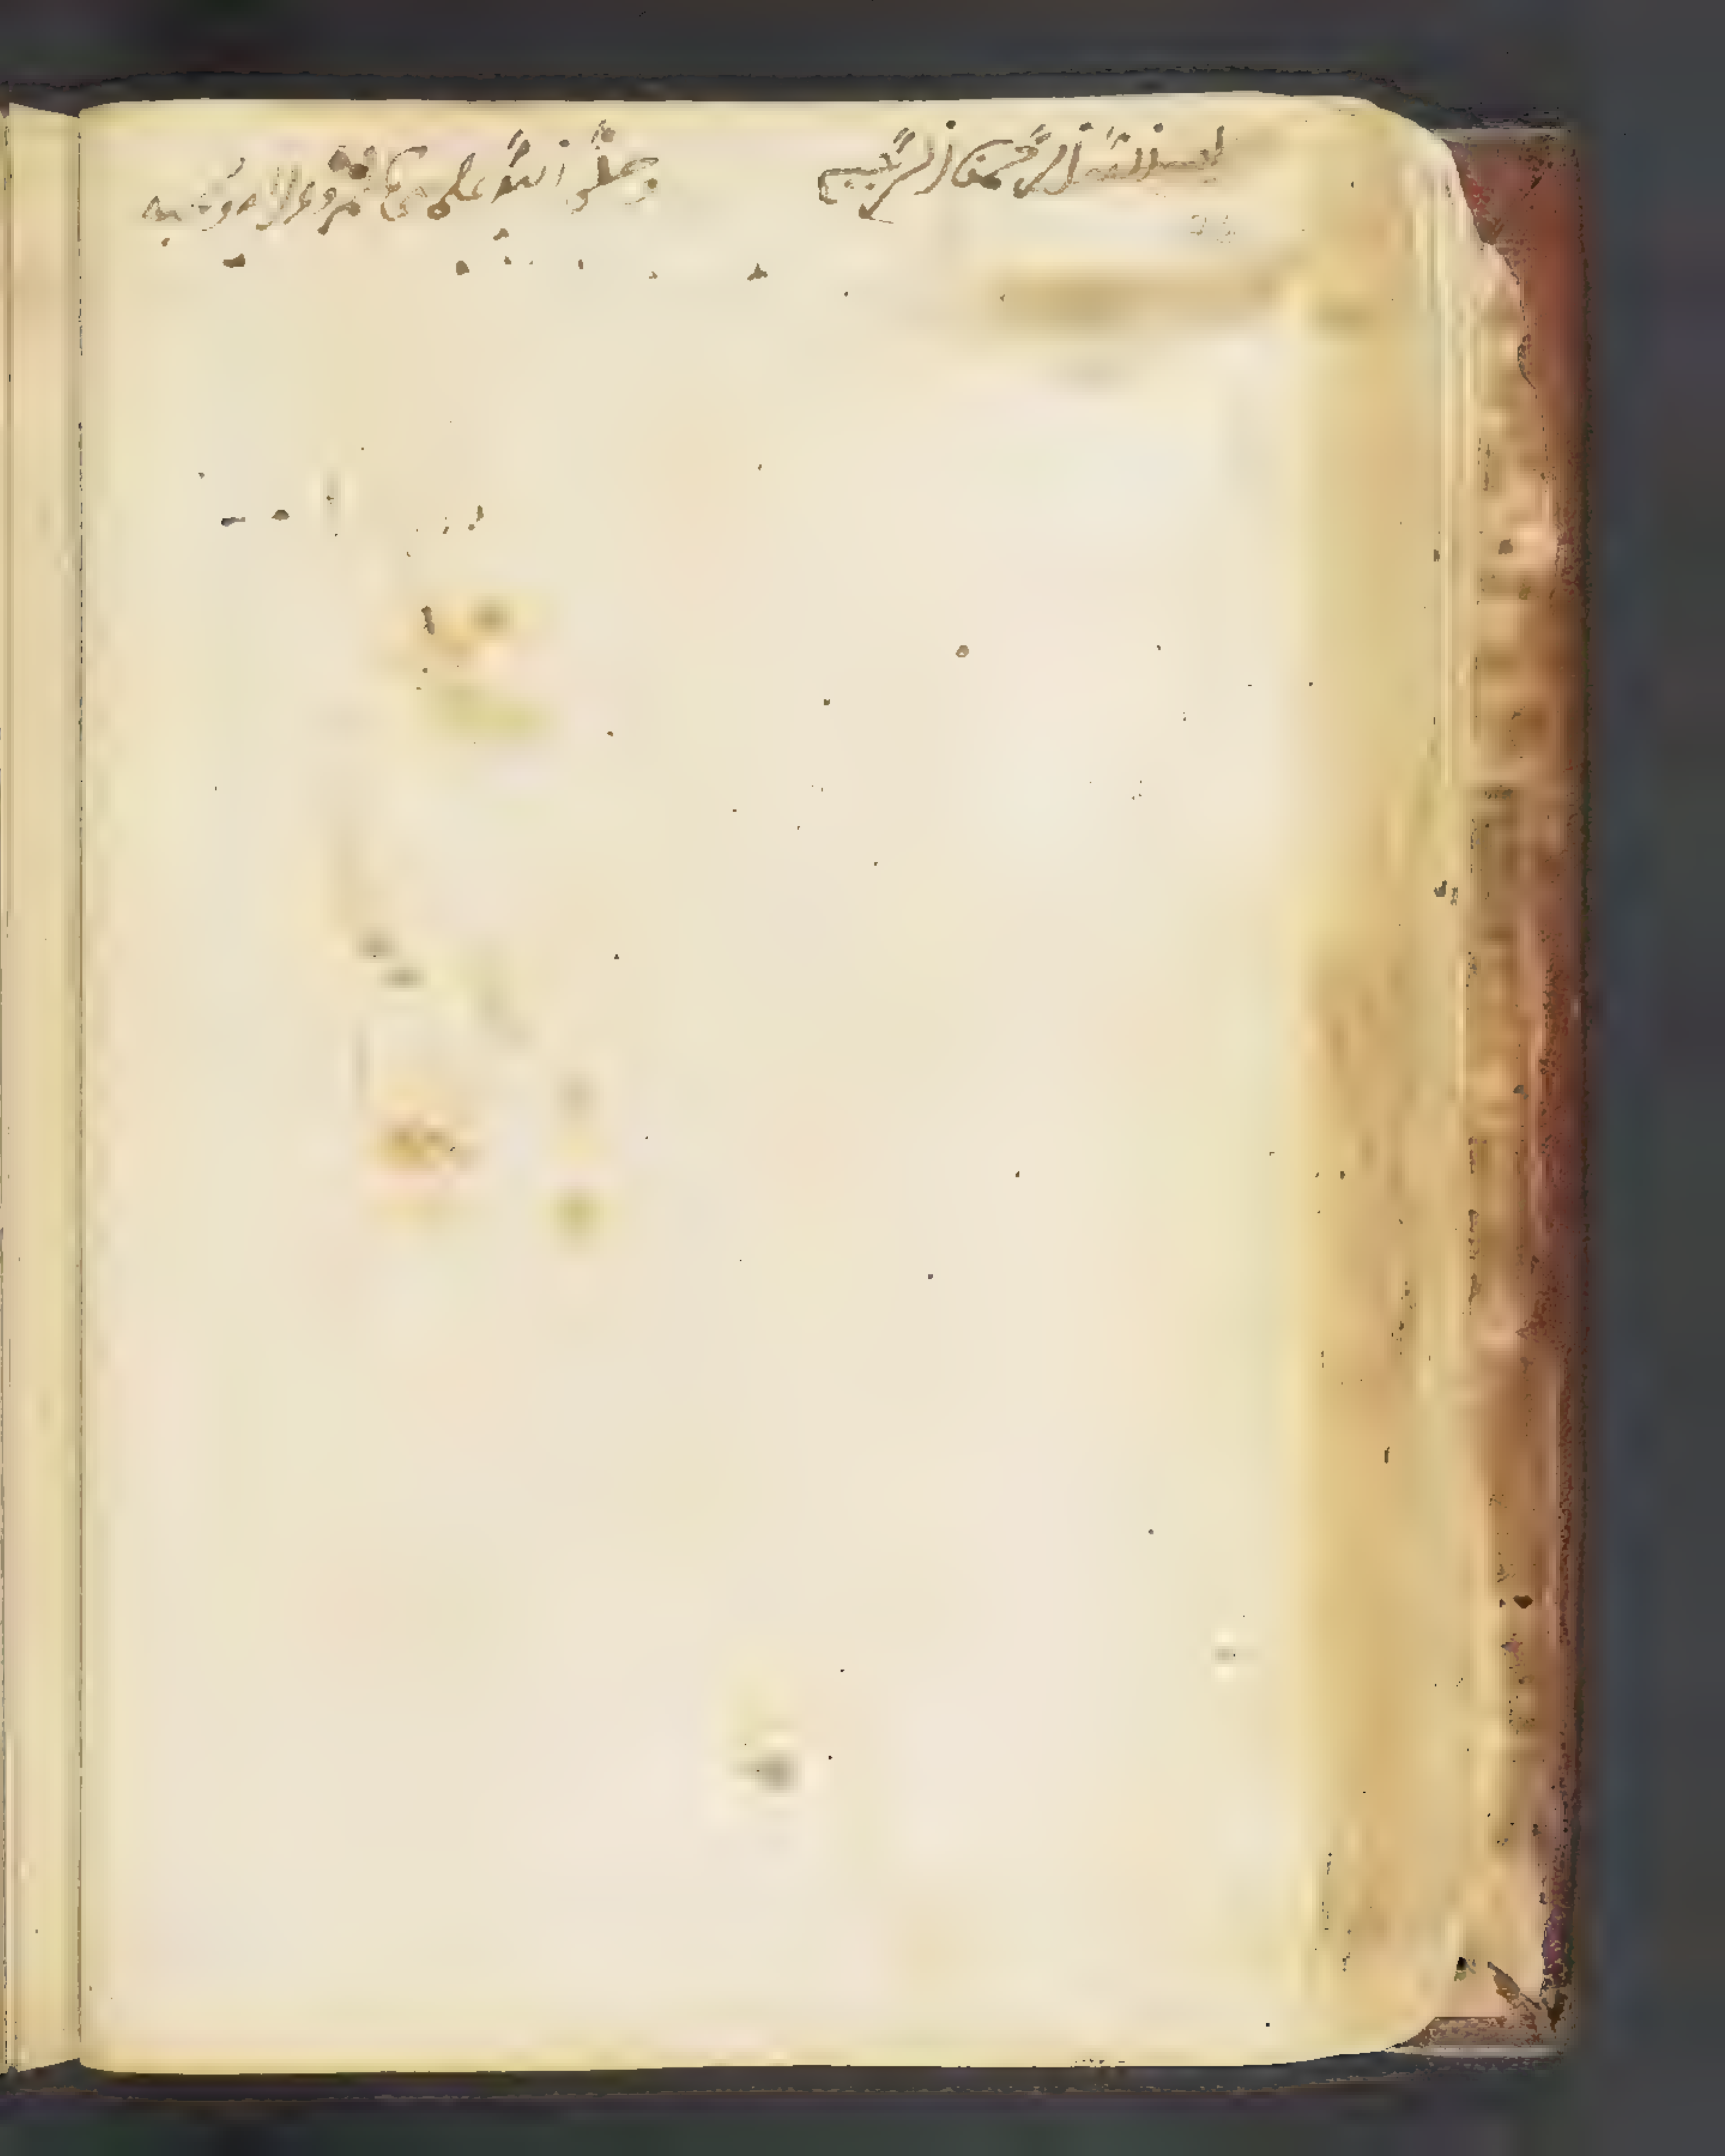 بسم الله الرحمن الرحيم وصلى الله على سيدنا محمد وعلى اله وصحبه